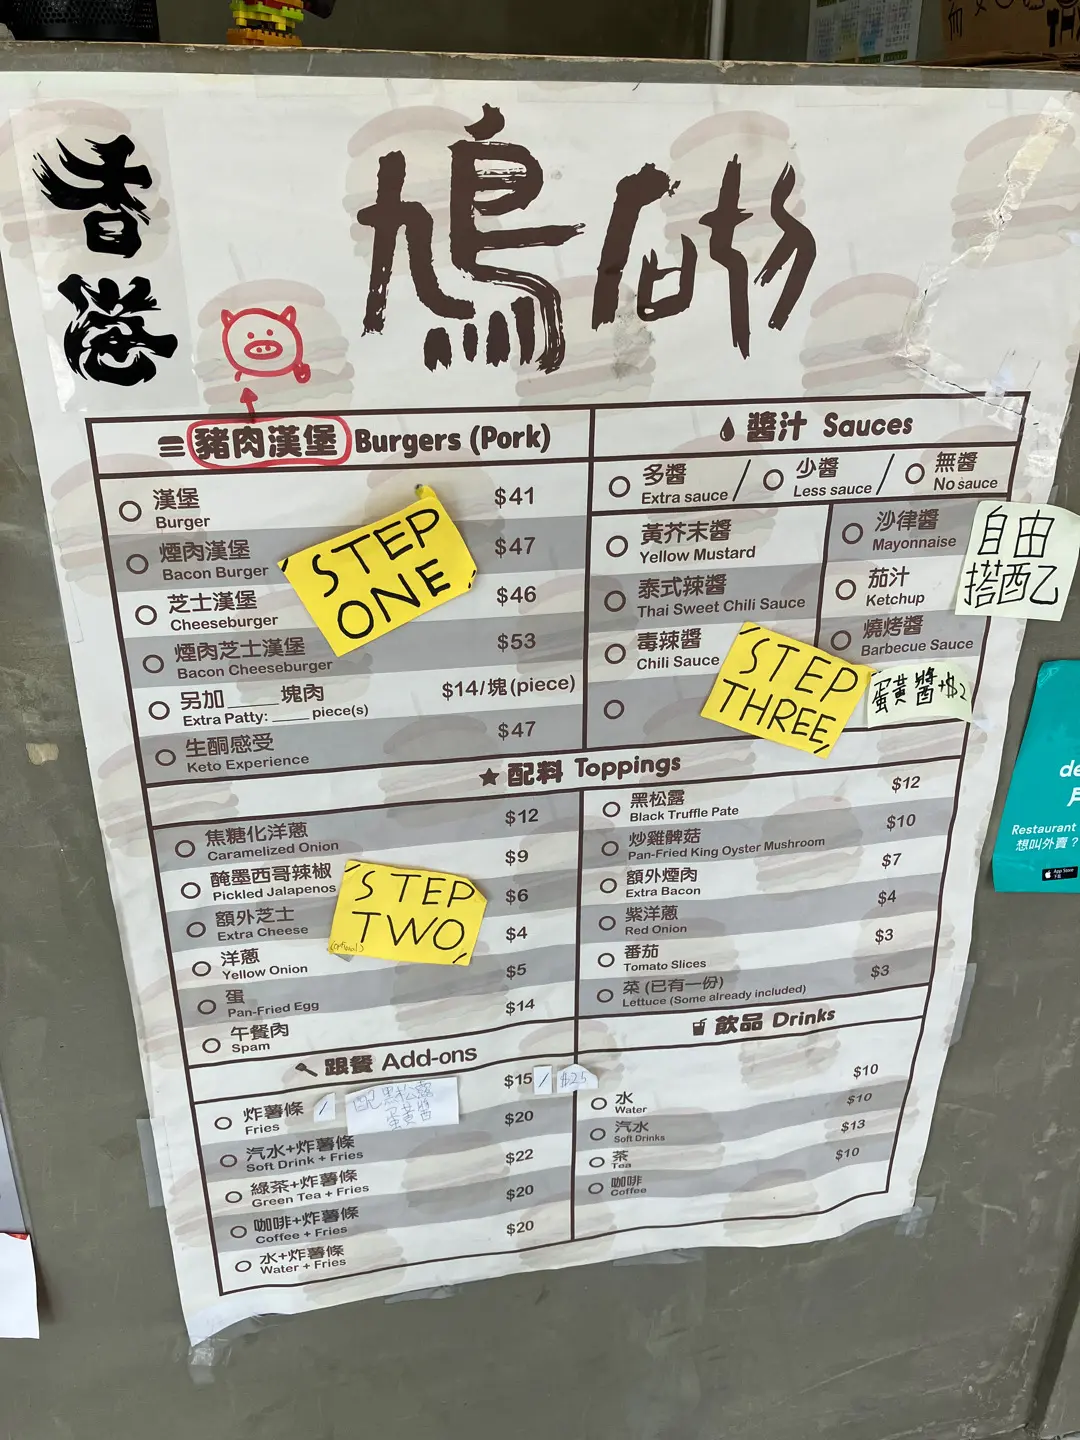 香港
鳩砌
豬肉漢堡 Burgers (Pork)
漢堡 $41
Burger
煙肉漢堡 $47
Bacon Burger
芝士漢堡 $46
Cheeseburger
煙肉芝士漢堡 $53
Bacon Cheeseburger
另加____塊肉 $14/塊(piece)
Extra Patty: ____ piece(s)
生酮感受 $47
Keto Experience
STEP
ONE
醬汁 Sauces
多醬 / 少醬 / 無醬
Extra sauce / Less sauce / No sauce
黃芥末醬
Yellow Mustard
泰式辣醬
Thai Sweet Chili Sauce
毒辣醬
Chili Sauce
沙律醬
Mayonnaise
茄汁
Ketchup
燒烤醬
Barbecue Sauce
自由
搭配
STEP
THREE
蛋黃醬+$2
配料 Toppings
焦糖化洋蔥 $12
Caramelized Onion
醃墨西哥辣椒 $9
Pickled Jalapenos
額外芝士 $6
Extra Cheese
洋蔥 $4
Yellow Onion
蛋 $5
Pan-Fried Egg
午餐肉 $14
Spam
STEP
TWO
(optional)
黑松露 $12
Black Truffle Pate
炒雞髀菇 $10
Pan-Fried King Oyster Mushroom
額外煙肉 $7
Extra Bacon
紫洋蔥 $4
Red Onion
番茄 $3
Tomato Slices
菜 (已有一份) $3
Lettuce (Some already included)
跟餐 Add-ons
炸薯條 / 配黑松露 $15 / $25
蛋黃醬
Fries
汽水+炸薯條 $20
Soft Drink + Fries
綠茶+炸薯條 $22
Green Tea + Fries
咖啡+炸薯條 $20
Coffee + Fries
水+炸薯條 $20
Water + Fries
飲品 Drinks
水 $10
Water
汽水 $10
Soft Drinks
茶 $13
Tea
咖啡 $10
Coffee
de
戶
Restaurant
想叫外賣？
App Store